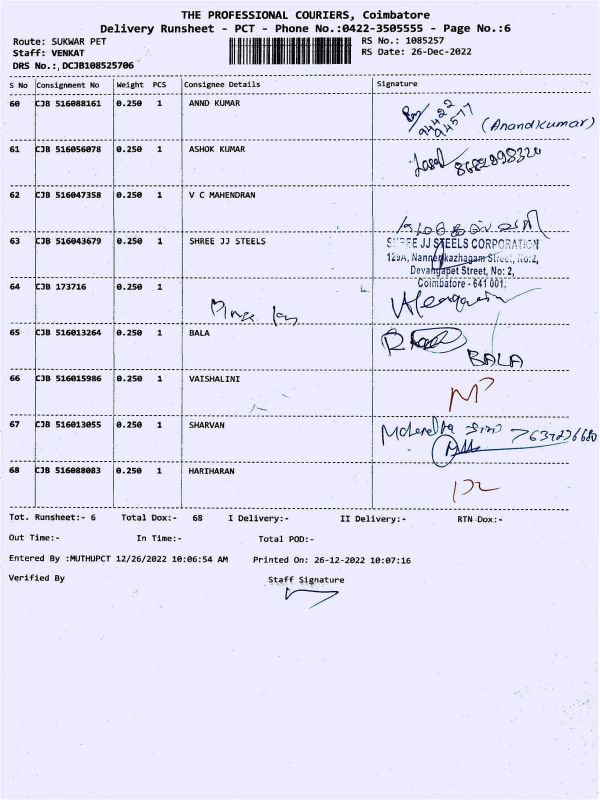 THE PROFESSIONAL COURIERS, Coimbatore
Delivery Runsheet - PCT - Phone No.:0422-3505555 - Page No.:6
Route: SUKWAR PET RS No.: 1085257
Staff: VENKAT RS Date: 26-Dec-2022
DRS No.: DCJB108525706
S No Consignment No Weight PCS Consignee Details Signature
60 CJB 516088161 0.250 1 ANND KUMAR
94422
94577 (Anandkumar)
61 CJB 516056078 0.250 1 ASHOK KUMAR
62 CJB 516047358 0.250 1 V C MAHENDRAN
63 CJB 516043679 0.250 1 SHREE JJ STEELS SHREE JJ STEELS CORPORATION
129A, Nannerikazhagam Street, No:2,
Devangapet Street, No: 2,
Coimbatore - 641 001.
64 CJB 173716 0.250 1
65 CJB 516013264 0.250 1 BALA
BALA
66 CJB 516015986 0.250 1 VAISHALINI
67 CJB 516013055 0.250 1 SHARVAN
68 CJB 516088083 0.250 1 HARIHARAN
Tot. Runsheet:- 6 Total Dox:- 68 I Delivery:- II Delivery:- RTN Dox:-
Out Time:- In Time:- Total POD:-
Entered By :MUTHUPCT 12/26/2022 10:06:54 AM Printed On: 26-12-2022 10:07:16
Verified By Staff Signature